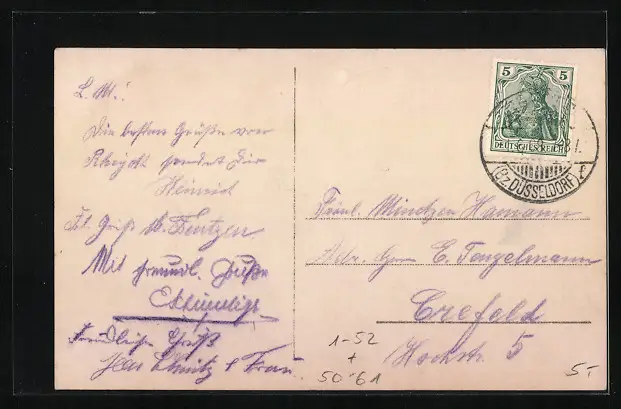 L. M.!
Die besten Grüße von
sendet Dir
Heinrich
Fr. Gruß A. Bentzen
Mit freundl. Grüße
Freundlichen Gruß
Jean Schmitz & Frau
5 5
DEUTSCHES REICH
(Bz. DÜSSELDORF)
Fräul. Mintzen Hamann
Adr. Herrn E. Tengelmann
Crefeld
Hochstr. 5
1-52
+
50-61
5.-